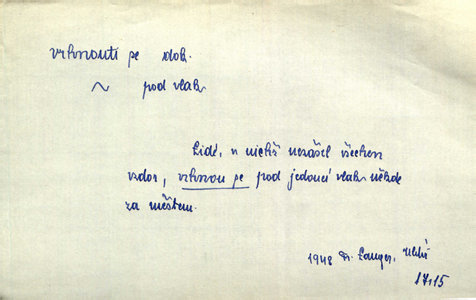 vrhnouti se dok.
~ pod vlak
Lidé, v nichž nezášel všechen
vzdor, vrhnou se pod jedoucí vlak někde
za městem.
1948 Fr. Langer,
17,15